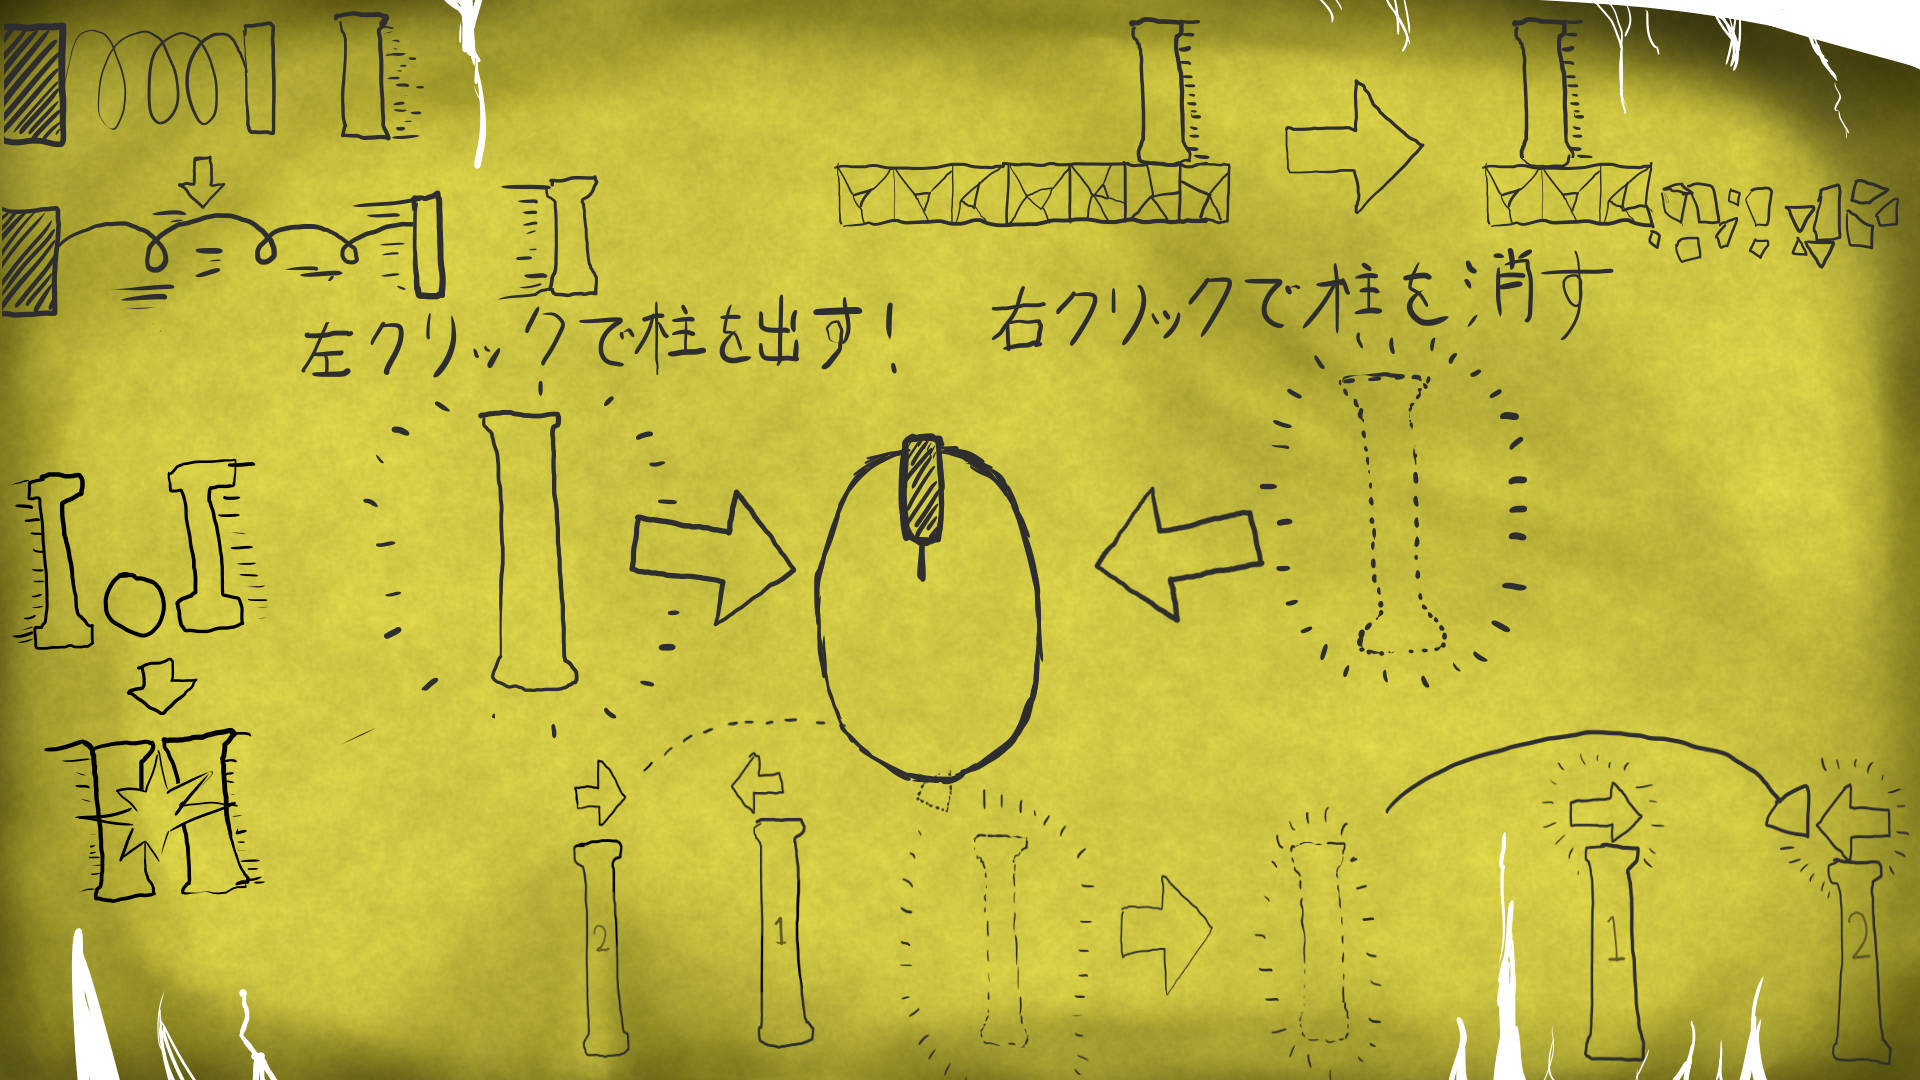 左クリックで柱を出す!
右クリックで柱を消す
2
1
1
2